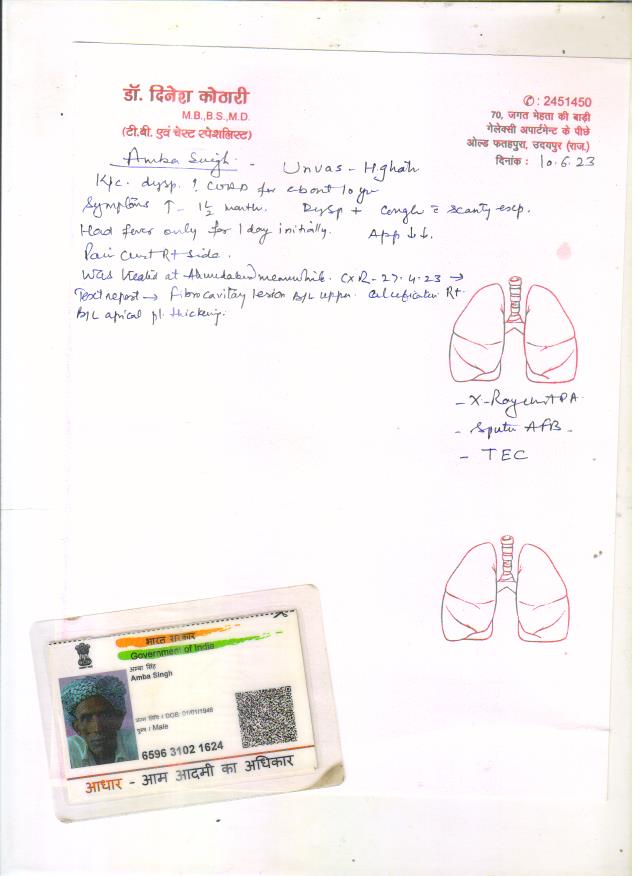 डॉ. दिनेश कोठारी
M.B.,B.S.,M.D.
(टी.बी. एवं चेस्ट स्पेशलिस्ट)
✆ : 2451450
70, जगत मेहता की बाड़ी
गेलेक्सी अपार्टमेन्ट के पीछे
ओल्ड फतहपुरा, उदयपुर (राज.)
दिनांक : 10.6.23
Amba Singh. - Unvas - H.ghati
K/c. dysp. ? COAD for about 10 yr
Symptoms ↑ - 1½ month. Dysp + Cough c̄ scanty exp.
Had fever only for 1 day initially. App ↓↓.
Pain chest Rt side.
Was treated at Ahmedabad meanwhile. CXR - 27.4.23 →
Text report → Fibrocavitary lesion B/L upper. Calcification Rt.
B/L apical pl. thickening.
- X-Ray chest PA
- Sputum AFB -
- TEC
भारत सरकार
Government of India
अम्बा सिंह
Amba Singh
जन्म तिथि / DOB: 01/01/1948
पुरुष / Male
6596 3102 1624
आधार - आम आदमी का अधिकार